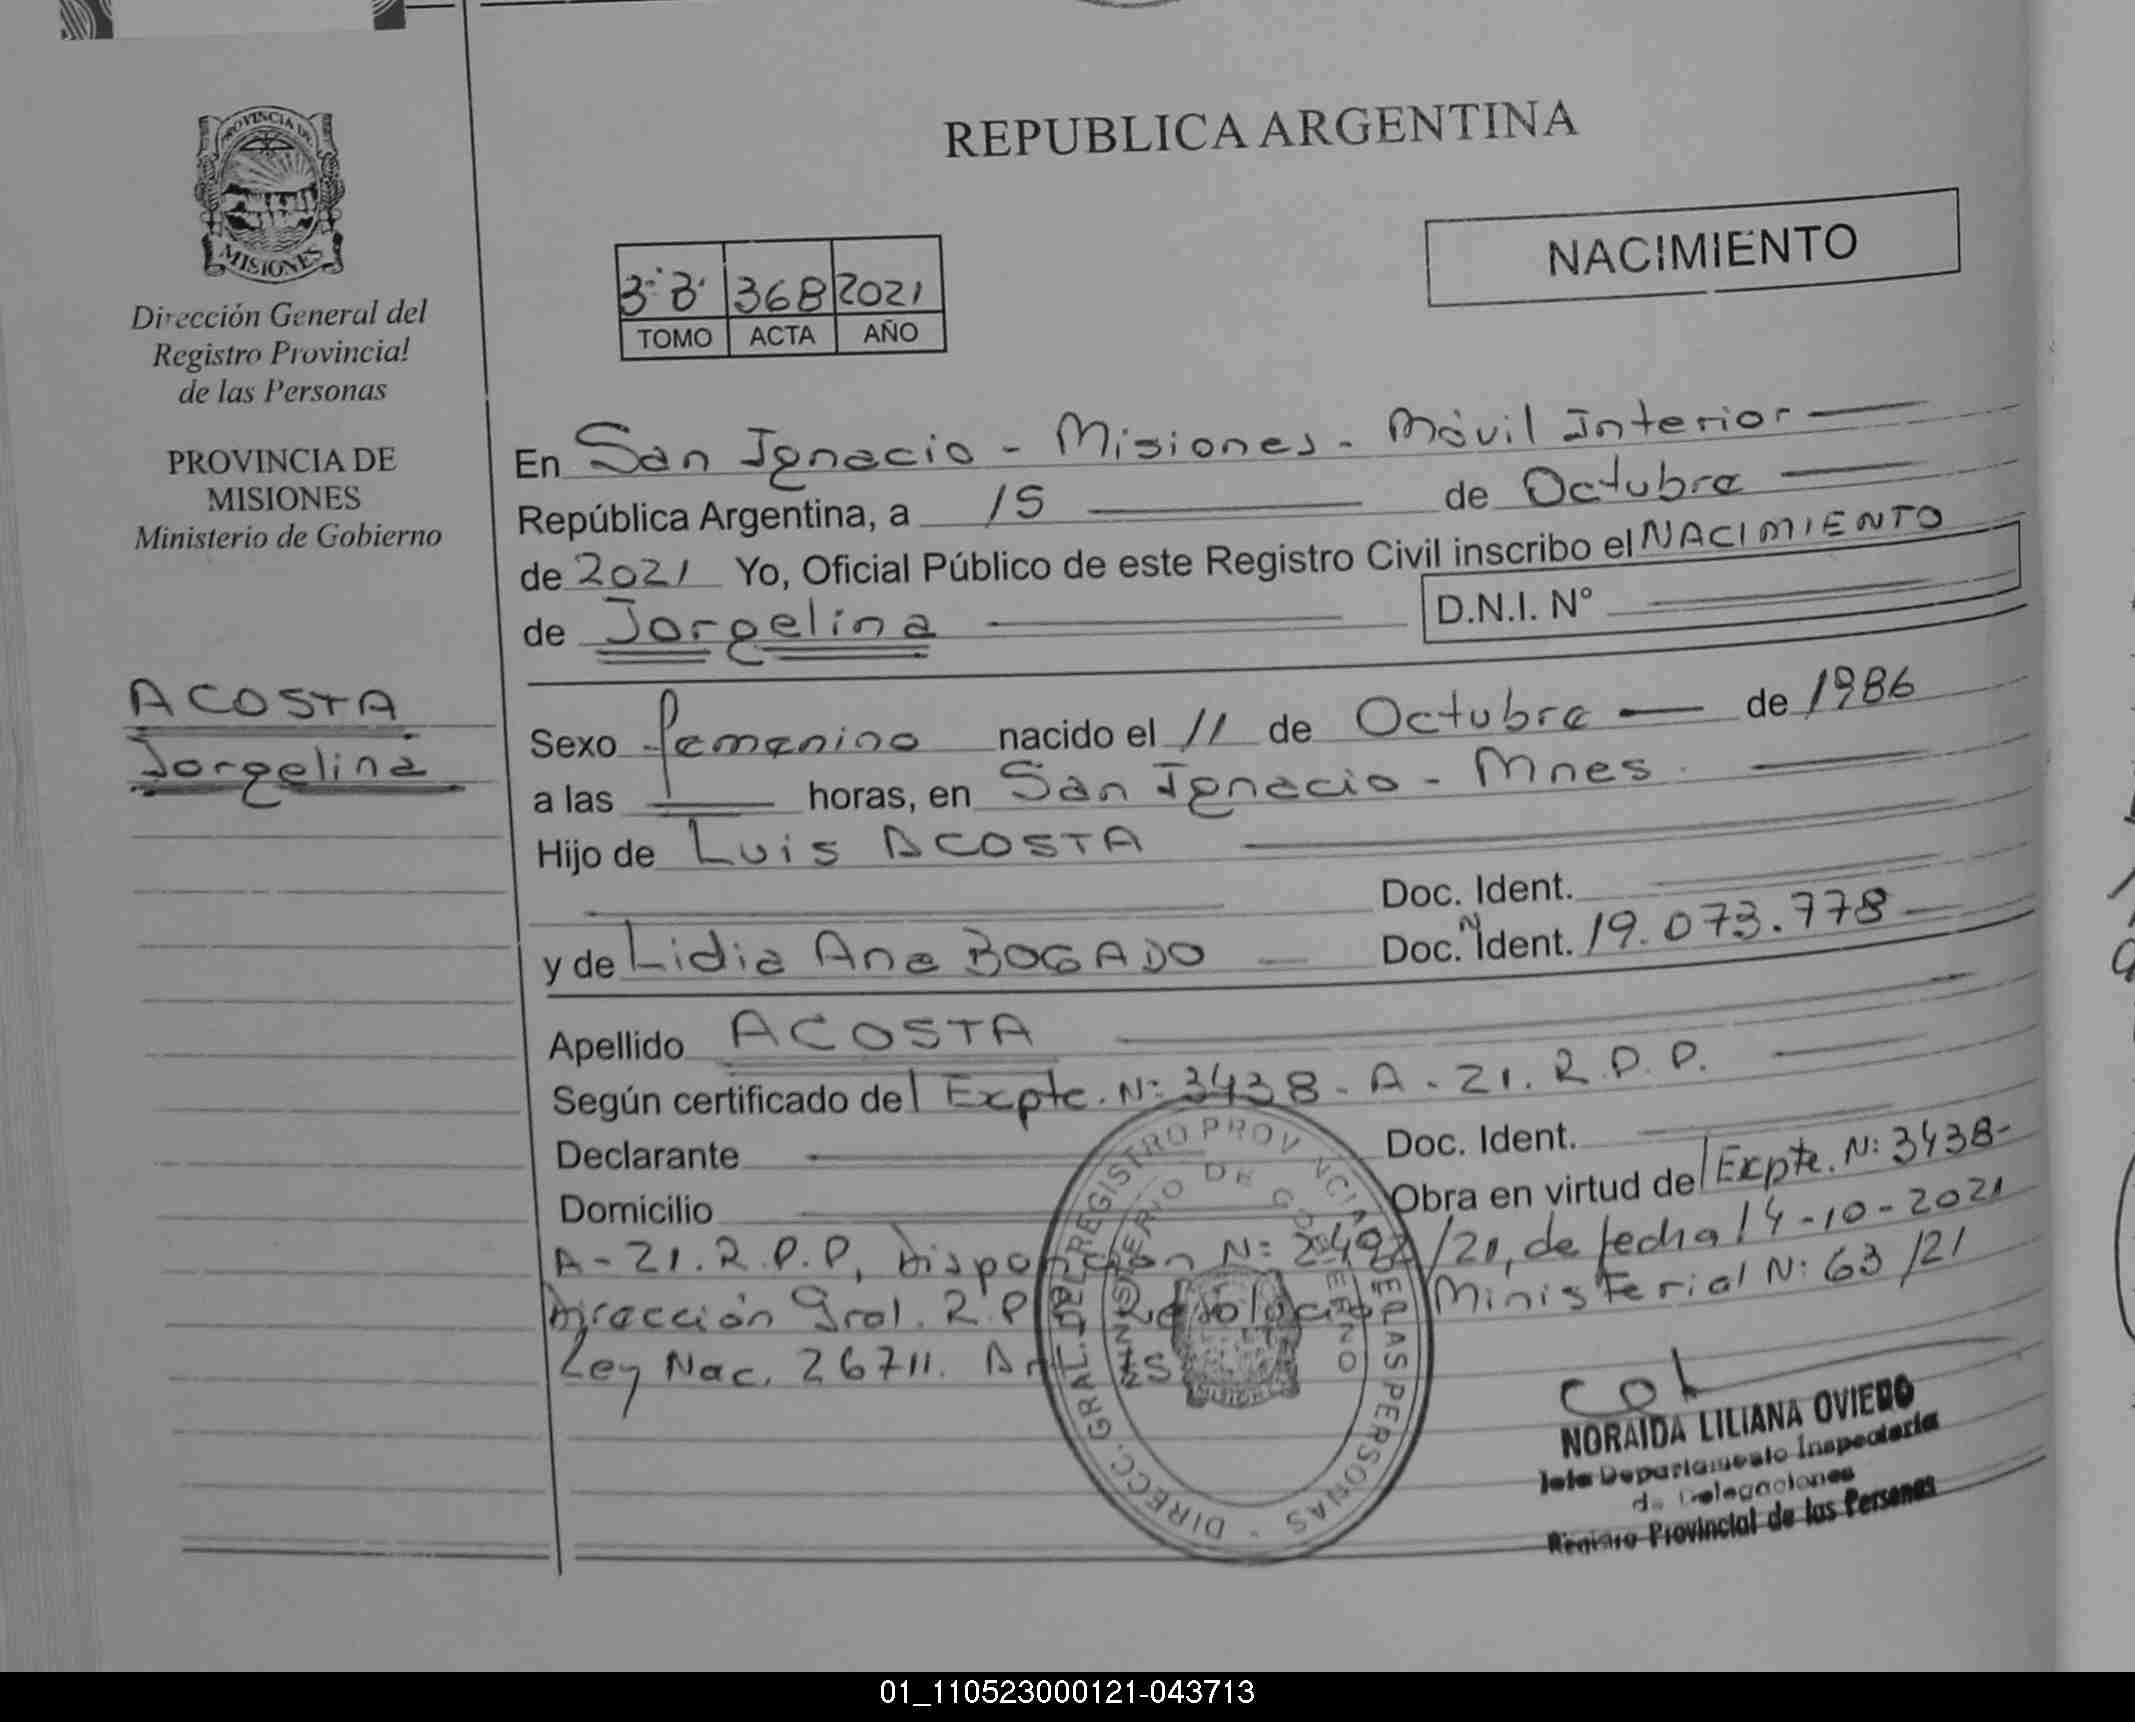 REPUBLICA ARGENTINA
PROVINCIA DE
MISIONES
Dirección General del
Registro Provincial
de las Personas
PROVINCIA DE
MISIONES
Ministerio de Gobierno
ACOSTA
Jorgelina
NACIMIENTO
368 2021
TOMO ACTA AÑO
En San Ignacio - Misiones - Móvil Interior
República Argentina, a 15 de Octubre
de 2021 Yo, Oficial Público de este Registro Civil inscribo el NACIMIENTO
de Jorgelina D.N.I. N°
Sexo femenino nacido el 11 de Octubre de 1986
a las horas, en San Ignacio - Mnes.
Hijo de Luis ACOSTA
Doc. Ident.
y de Lidia Ana BOGADO Doc. Ident. 19.073.778
Apellido ACOSTA
Según certificado del Expte. N: 3438 - A - 21. R. P. P.
Declarante Doc. Ident.
Domicilio Obra en virtud del Expte. N: 3438-
A - 21. R. P. P, Disposición N: /21, de fecha 14-10-2021
Dirección Gral. R. P. Resolución Ministerial N: 63/21
Ley Nac. 26711.
DIRECC. GRAL. DEL REGISTRO PROVINCIAL DE LAS PERSONAS
MINISTERIO DE GOBIERNO
NORAIDA LILIANA OVIEDO
Jefe Departamento Inspectoría
de Delegaciones
Registro Provincial de las Personas
01_110523000121-043713